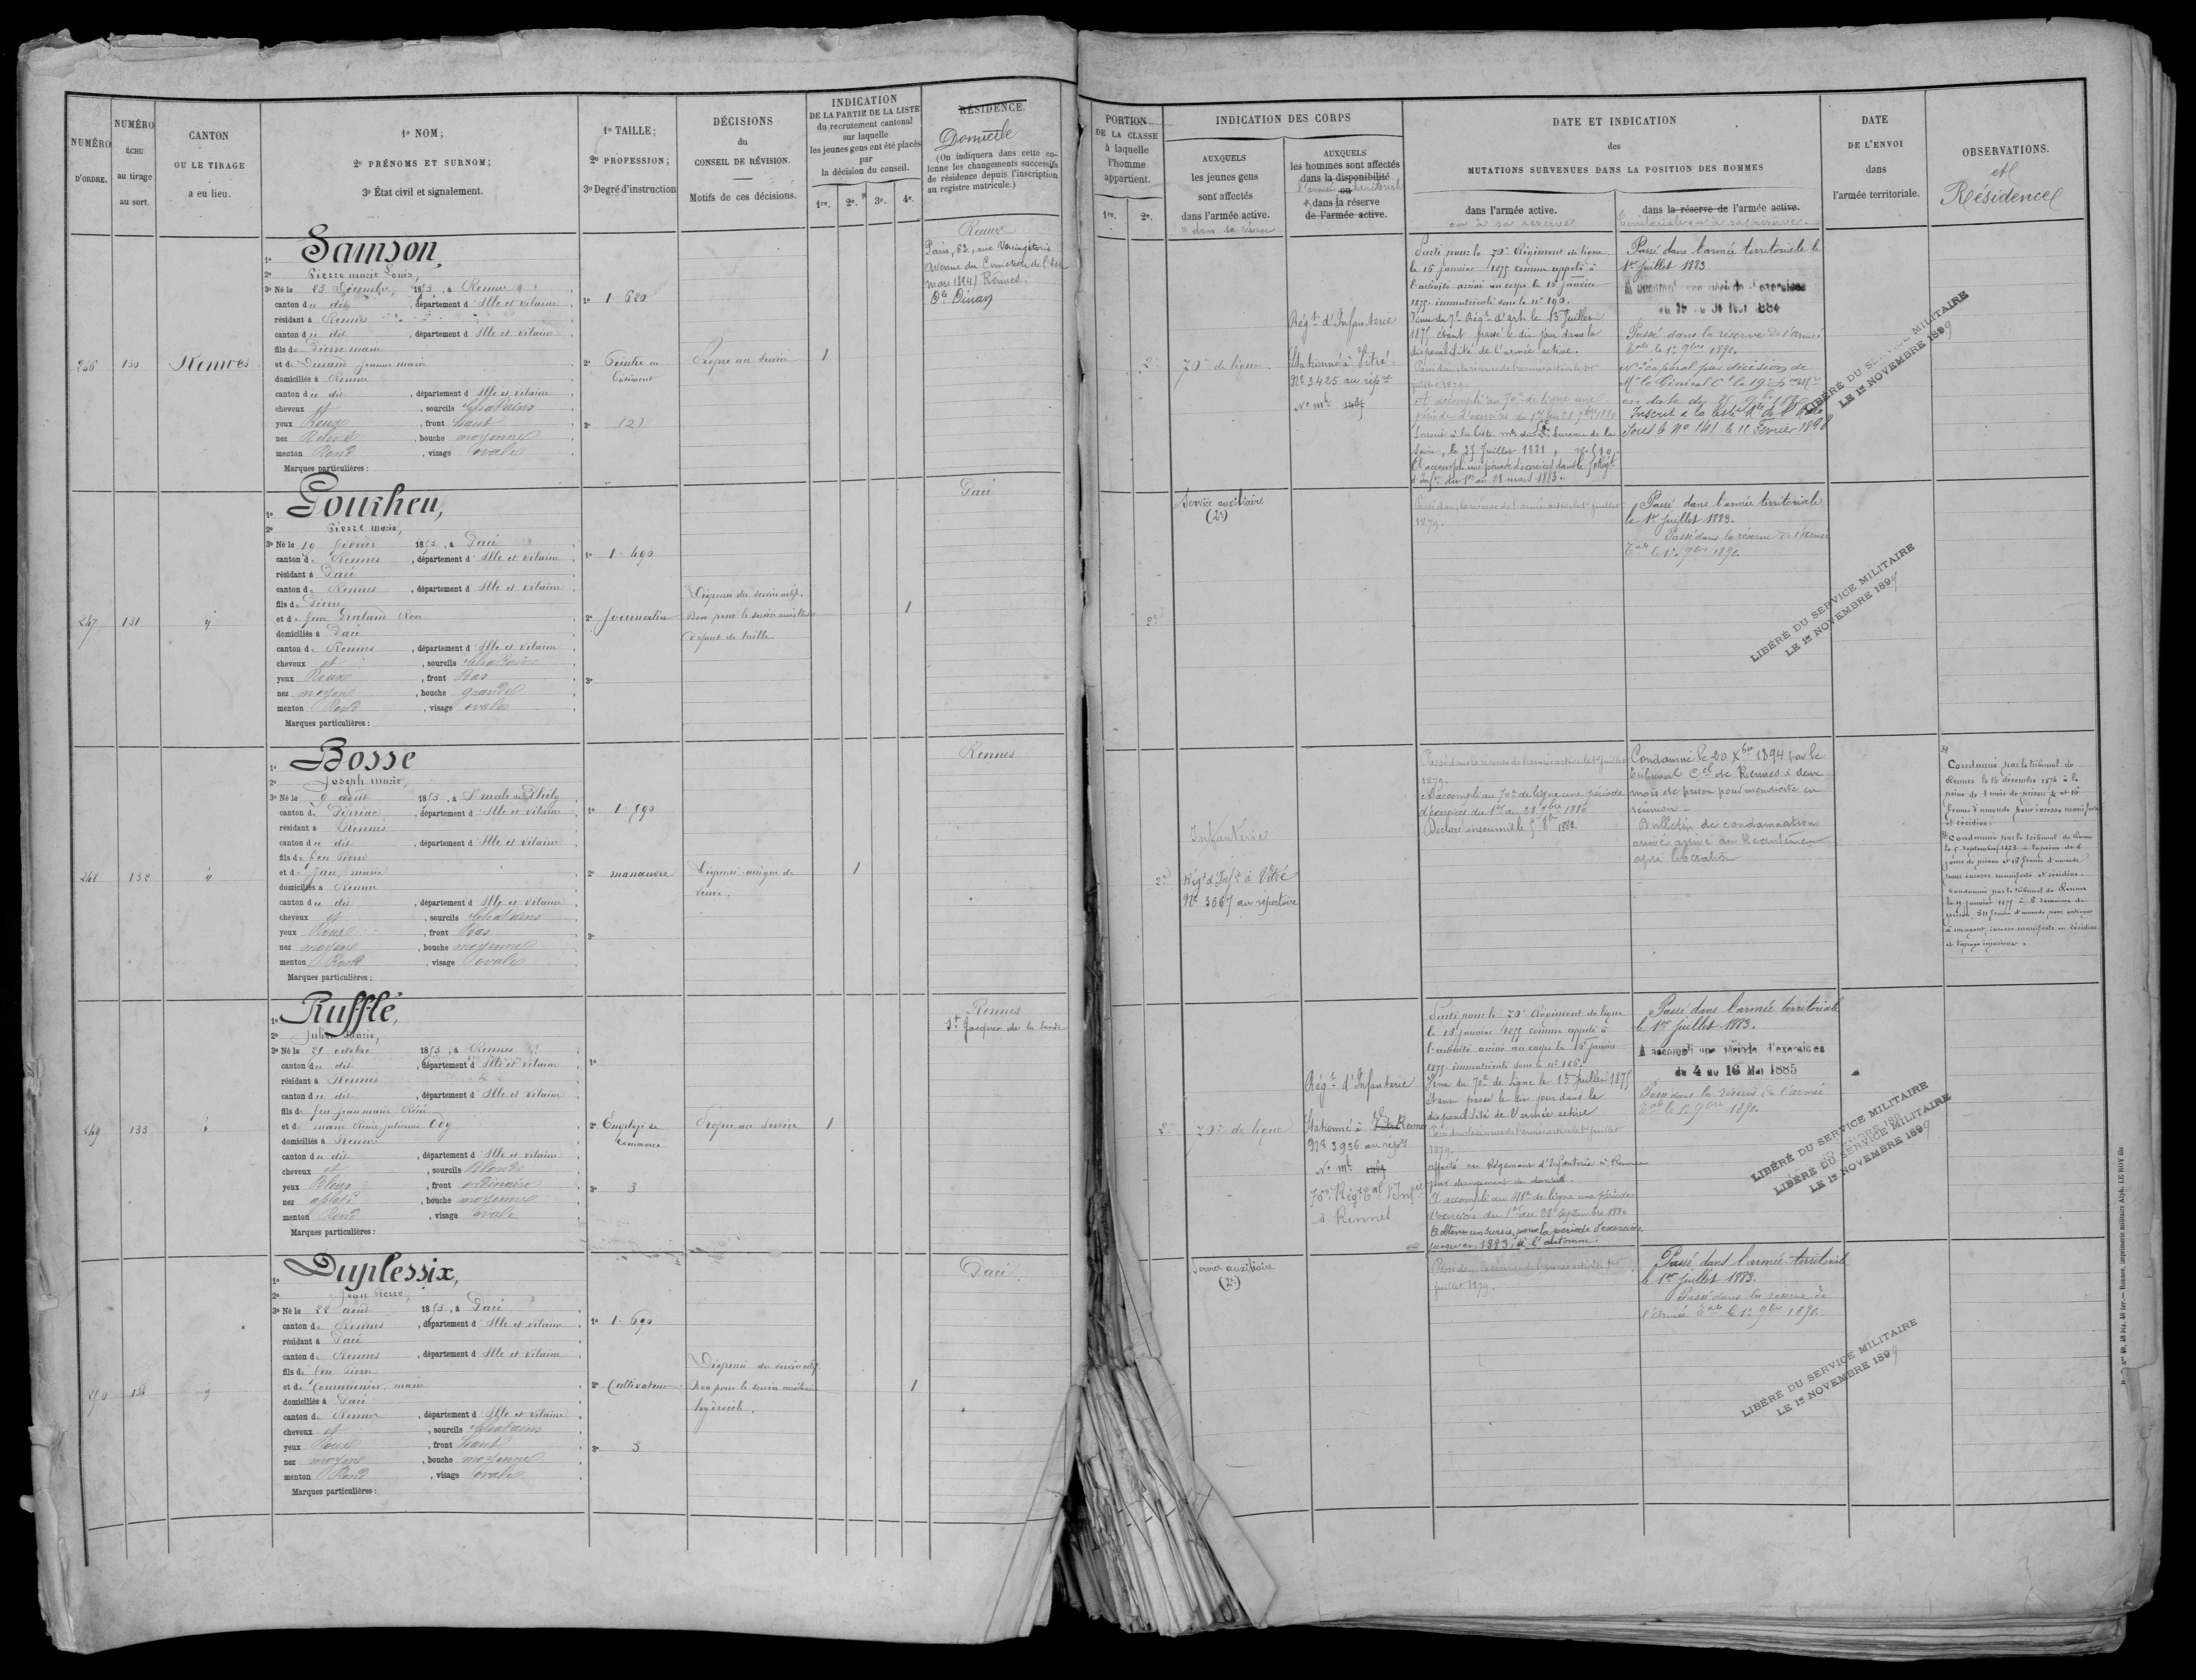 NUMÉRO
D'ORDRE.
NUMÉRO
ÉCHU
au tirage
au sort.
CANTON
OU LE TIRAGE
a eu lieu.
1º NOM;
2º PRÉNOMS ET SURNOM;
3º État civil et signalement.
1º TAILLE;
2º PROFESSION;
3º Degré d'instruction
DÉCISIONS
du
CONSEIL DE RÉVISION.
Motifs de ces décisions.
INDICATION
DE LA PARTIE DE LA LISTE
du recrutement cantonal
sur laquelle
les jeunes gens ont été placés
par
la décision du conseil.
1re. 2e. 3e. 4e.
RÉSIDENCE.
Domicile
(On indiquera dans cette co-
lonne les changements successifs
de résidence depuis l'inscription
au registre matricule.)
PORTION
DE LA CLASSE
à laquelle
l'homme
appartient.
1re. 2e.
INDICATION DES CORPS
AUXQUELS
les jeunes gens
sont affectés
dans l'armée active.
AUXQUELS
les hommes sont affectés
dans la disponibilité
ou
dans la réserve
de l'armée active.
DATE ET INDICATION
des
MUTATIONS SURVENUES DANS LA POSITION DES HOMMES
dans l'armée active.
ou à sa réserve
dans la réserve de l'armée active.
territoriale ou à sa réserve.
DATE
DE L'ENVOI
dans
l'armée territoriale.
OBSERVATIONS.
et
Résidence
246
130
Rennes
1º Samson
2º Pierre marie Louis,
3º Né le 23 Décembre 1853, à Rennes
canton du dit, département d'Ille et Vilaine
résidant à Rennes
canton du dit, département d'Ille et Vilaine
fils de Pierre marie
et de Durand Jeanne marie
domiciliés à Rennes
canton du dit, département d'Ille et Vilaine
cheveux et, sourcils Chatains
yeux Roux, front haut
nez Relevé, bouche moyenne
menton Rond, visage ovale
Marques particulières:
1º 1. 620
2º Peintre en
bâtiment
3º (2)
Propre au service
1
Rennes
Paris, 52, rue Vercingétorix
Avenue du Cimetière de l'Est
mars 1894) Rennes.
Dinan
2e
70e de ligne.
Régt d'Infanterie
Stationné à Vitré
No 3425 au répre
No mle
Parti pour le 70e Régiment de ligne
le 15 janvier 1875 comme appelé à
l'activité arrivé au corps le 15 janvier
1875. immatriculé sous le no 190.
disponibilité de l'armée active.
Passé dans la réserve de l'armée active le 1er
juillet 1879.
A accompli au 70e de ligne une
Seine, le 25 Juillet 1881,
A accompli une période d'exercices dans le
d'Infie du 1er au 28 mars 1883.
Passé dans l'armée territoriale le
1er juillet 1883.
A accompli une période d'exercices
Passé dans la réserve de l'armée
Tale le 1er 9bre 1890.
Sous le No 141 le 11 Février 1898
LIBÉRÉ DU SERVICE MILITAIRE
LE 1er NOVEMBRE 1899
247
131
1º Gourheu,
2º Pierre marie,
3º Né le 19 février 1853, à Pacé
canton de Rennes, département d'Ille et Vilaine
résidant à Pacé
canton de Rennes, département d'Ille et Vilaine
fils de Pierre
et de feue
domiciliés à Pacé
canton de Rennes, département d'Ille et Vilaine
cheveux et, sourcils Chatains
yeux Roux, front Bas
nez moyen, bouche grande
menton Rond, visage ovale
Marques particulières:
1º 1. 490
2º Journalier
3º
Dispensé du service actif.
Bon pour le service auxiliaire
Défaut de taille
1
Pacé
2e
Service auxiliaire
(2e)
Passé dans la réserve de l'armée active le 1er juillet
1879.
Passé dans l'armée territoriale
le 1er juillet 1883.
Passé dans la réserve de l'armée
Tale le 1er 9bre 1890
LIBÉRÉ DU SERVICE MILITAIRE
LE 1er NOVEMBRE 1899
248
132
1º Bosse
2º Joseph marie,
3º Né le 9 août 1853, à St malo de Phily
canton de Pipriac, département d'Ille et Vilaine
résidant à Rennes
canton du dit, département d'Ille et Vilaine
fils de feu Pierre
et de Jan, marie
domiciliés à Rennes
canton du dit, département d'Ille et Vilaine
cheveux et, sourcils Chatains
yeux Roux, front Bas
nez moyen, bouche moyenne
menton Rond, visage ovale
Marques particulières:
1º 1. 590
2º manœuvre
3º
Dispensé. unique de
veuve.
1
Rennes
2e
Infanterie
Régt d'Infie à Vitré
No 3667 au répertoire
Passé dans la réserve de l'armée active le 1er juillet
1879.
A accompli au 70e de ligne une période
d'exercices du 1er au 28 7bre 1880
Déclaré insoumis le
Condamné le 20 Xbre 1894 par le
tribunal Cel de Rennes à deux
mois de prison pour mendicité en
réunion.
Bulletin de condamnation
arrivé arrivé au Recrutement
après libération
Condamné par le tribunal de
Rennes le 14 décembre 1874 à la
peine de 1 mois de prison et 16
francs d'amende pour ivresse manifeste
et récidive.
Condamné par le tribunal de Rennes
le 5 septembre 1873 à la peine de 6
jours de prison et 16 francs d'amende
pour ivresse manifeste et récidive.
Condamné par le tribunal de Rennes
le 19 janvier 1875 à 6 semaines de
à un agent, ivresse manifeste en récidive
et tapage injurieux.
249
133
1º Rufflé,
2º Julien Marie,
3º Né le 21 octobre 1853, à Rennes
canton du dit, département d'Ille et Vilaine
résidant à Rennes
canton du dit, département d'Ille et Vilaine
fils de feu jean marie René
et de marie Renée julienne
domiciliés à Rennes
canton du dit, département d'Ille et Vilaine
cheveux et, sourcils Blonds
yeux Bleus, front ordinaire
nez aplati, bouche moyenne
menton Rond, visage ovale
Marques particulières:
1º
2º Employé de
commerce
3º 3
Propre au service
1
Rennes
St Jacques de la lande
2e
70e de ligne
Régt d'Infanterie
Stationné à Rennes
No 3936 au répre
No mle
70e Régt Tal d'Infie
à Rennes
Parti pour le 70e Régiment de ligne
le 15 janvier 1875 comme appelé à
l'activité arrivé au corps le 15 janvier
1875. immatriculé sous le no 186.
Venu du 70e de ligne le 15 juillet 1875
Etant passé le dit jour dans la
disponibilité de l'armée active
Passé dans la réserve de l'armée active le 1er juillet
1879.
affecté au Régiment d'Infanterie à Rennes
pour changement de domicile.
A accompli au 41e de ligne une période
d'exercices du 1er au 28 septembre 1880
A obtenu un sursis pour la période d'exercices
jusqu'en 1883, à l'automne.
Passé dans l'armée territoriale
le 1er juillet 1883.
A accompli une période d'exercices
du 4 au 16 Mai 1885
Passé dans la réserve de l'armée
Tale le 1er 9bre 1890.
LIBÉRÉ DU SERVICE MILITAIRE
LIBÉRÉ DU SERVICE MILITAIRE
LE 1er NOVEMBRE 1899
250
134
1º Duplessix,
2º Jean Pierre,
3º Né le 28 août 1853, à Pacé
canton de Rennes, département d'Ille et Vilaine
résidant à Pacé
canton de Rennes, département d'Ille et Vilaine
fils de feu Pierre
et de Communier, marie
domiciliés à Pacé
canton de Rennes, département d'Ille et Vilaine
cheveux et, sourcils Chatains
yeux Roux, front haut
nez moyen, bouche moyenne
menton Rond, visage ovale
Marques particulières:
1º 1. 690
2º Cultivateur
3º 3
Dispensé du service actif.
Bon pour le service auxiliaire
hydrocèle.
1
Pacé
Service auxiliaire
(2e)
Passé dans la réserve de l'armée active le 1er
juillet 1879.
Passé dans l'armée territoriale
le 1er juillet 1883.
Passé dans la réserve de
l'armée Tale le 1er 9bre 1890
LIBÉRÉ DU SERVICE MILITAIRE
LE 1er NOVEMBRE 1899
48, 48 bis, 48 ter.— Rennes, imprimerie militaire Alph. LE ROY fils